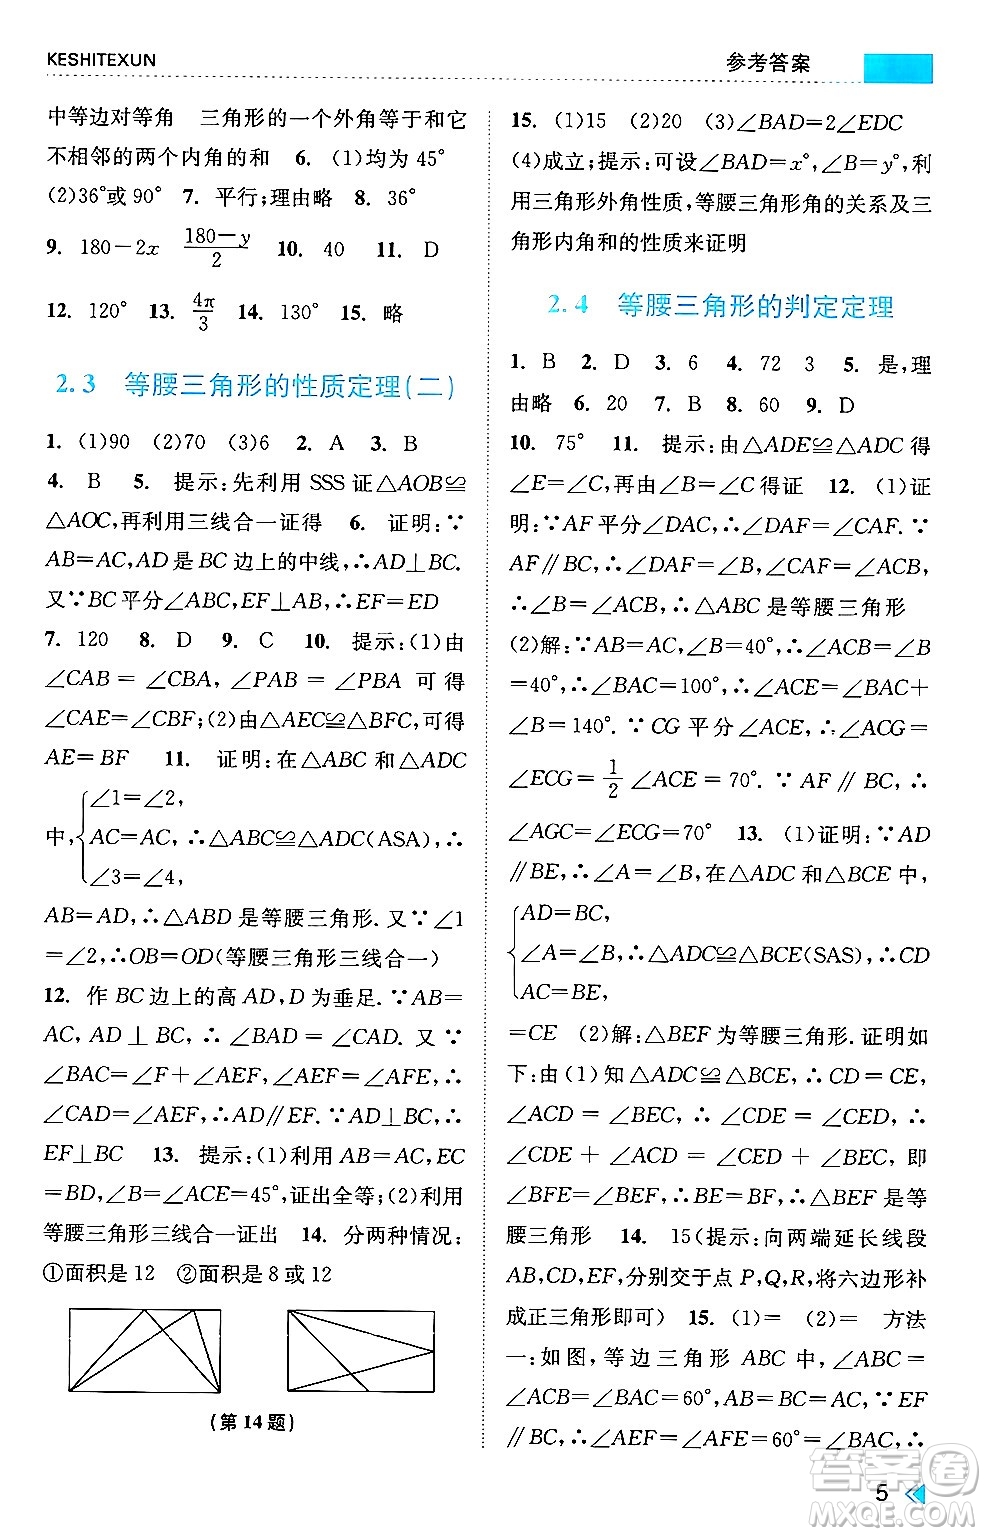 KESHITEXUN
参考答案
中等边对等角 三角形的一个外角等于和它
不相邻的两个内角的和 6. (1)均为45°
(2)36°或90° 7. 平行;理由略 8. 36°
9. 180－2x (180－y)/2 10. 40 11. D
12. 120° 13. 4π/3 14. 130° 15. 略
2.3 等腰三角形的性质定理(二)
1. (1)90 (2)70 (3)6 2. A 3. B
4. B 5. 提示:先利用SSS证△AOB≌
△AOC,再利用三线合一证得 6. 证明:∵
AB=AC,AD是BC边上的中线,∴AD⊥BC.
又∵BC平分∠ABC,EF⊥AB,∴EF=ED
7. 120 8. D 9. C 10. 提示:(1)由
∠CAB = ∠CBA, ∠PAB = ∠PBA 可得
∠CAE=∠CBF;(2)由△AEC≌△BFC,可得
AE=BF 11. 证明:在△ABC和△ADC
∠1=∠2,
中, AC=AC, ∴△ABC≌△ADC(ASA),∴
∠3=∠4,
AB=AD,∴△ABD是等腰三角形.又∵∠1
=∠2,∴OB=OD(等腰三角形三线合一)
12. 作BC边上的高AD,D为垂足.∵AB=
AC, AD⊥BC, ∴∠BAD=∠CAD. 又∵
∠BAC=∠F+∠AEF,∠AEF=∠AFE,∴
∠CAD=∠AEF,∴AD∥EF.∵AD⊥BC,∴
EF⊥BC 13. 提示:(1)利用AB=AC,EC
=BD,∠B=∠ACE=45°,证出全等;(2)利用
等腰三角形三线合一证出 14. 分两种情况:
①面积是12 ②面积是8或12
(第14题)
15. (1)15 (2)20 (3)∠BAD=2∠EDC
(4)成立;提示:可设∠BAD=x°,∠B=y°,利
用三角形外角性质,等腰三角形角的关系及三
角形内角和的性质来证明
2.4 等腰三角形的判定定理
1. B 2. D 3. 6 4. 72 3 5. 是,理
由略 6. 20 7. B 8. 60 9. D
10. 75° 11. 提示:由△ADE≌△ADC得
∠E=∠C,再由∠B=∠C得证 12. (1)证
明:∵AF平分∠DAC,∴∠DAF=∠CAF.∵
AF∥BC,∴∠DAF=∠B,∠CAF=∠ACB,
∴∠B=∠ACB,∴△ABC是等腰三角形
(2)解:∵AB=AC,∠B=40°,∴∠ACB=∠B
=40°,∴∠BAC=100°,∴∠ACE=∠BAC+
∠B=140°.∵CG平分∠ACE,∴∠ACG=
∠ECG=1/2∠ACE=70°.∵AF∥BC,∴
∠AGC=∠ECG=70° 13. (1)证明:∵AD
∥BE,∴∠A=∠B,在△ADC和△BCE中,
AD=BC,
∠A=∠B,∴△ADC≌△BCE(SAS),∴CD
AC=BE,
=CE (2)解:△BEF为等腰三角形.证明如
下:由(1)知△ADC≌△BCE,∴CD=CE,
∠ACD = ∠BEC, ∴∠CDE = ∠CED, ∴
∠CDE + ∠ACD = ∠CED + ∠BEC, 即
∠BFE=∠BEF,∴BE=BF,∴△BEF是等
腰三角形 14. 15(提示:向两端延长线段
AB,CD,EF,分别交于点P,Q,R,将六边形补
成正三角形即可) 15. (1)= (2)= 方法
一:如图,等边三角形ABC中,∠ABC=
∠ACB=∠BAC=60°,AB=BC=AC,∵EF
∥BC,∴∠AEF=∠AFE=60°=∠BAC,∴
5
答案圈
MXQE.COM